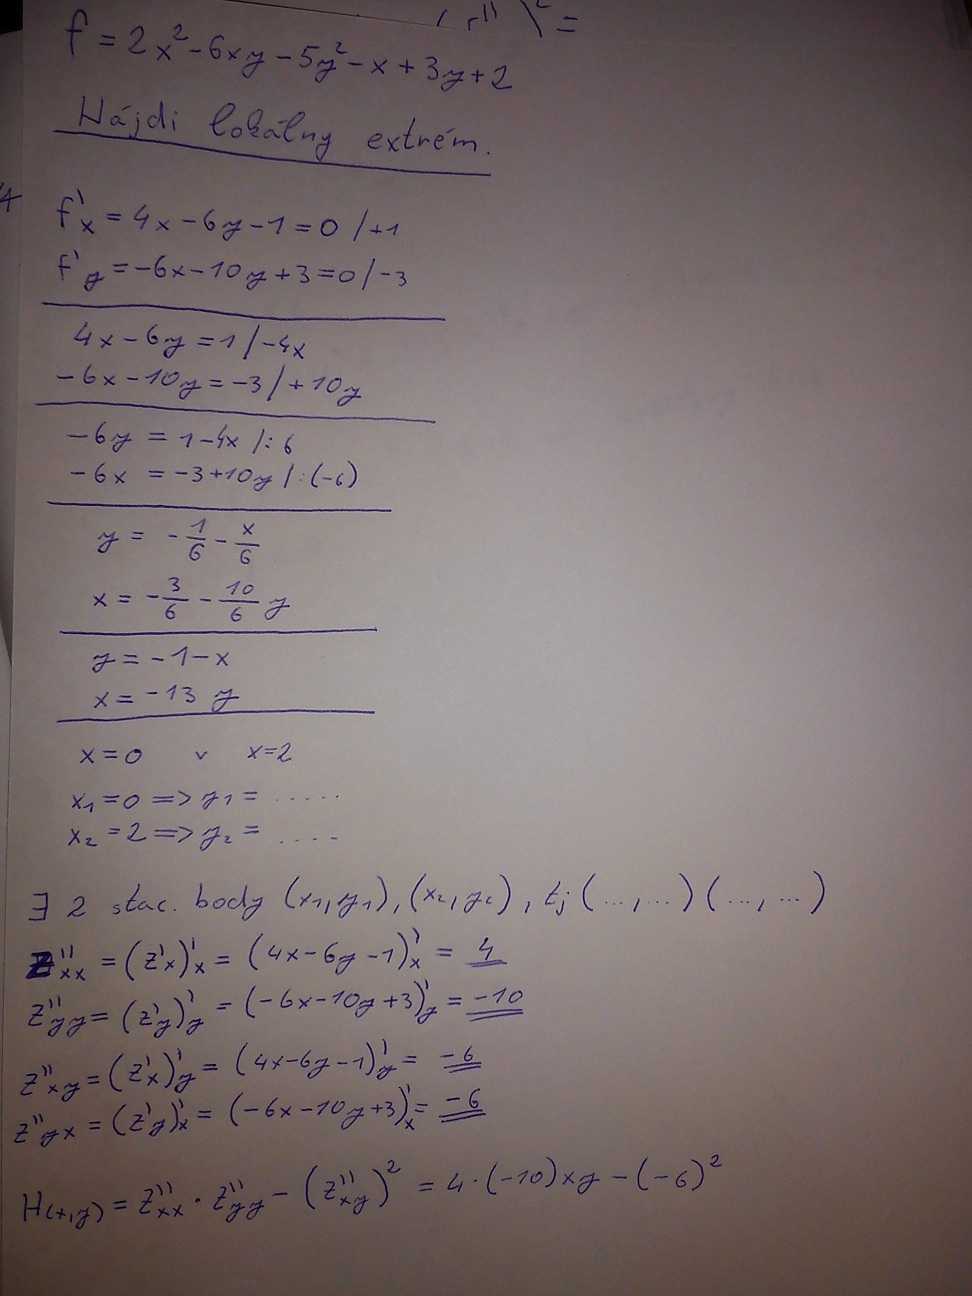 f = 2x² - 6xy - 5y² - x + 3y + 2
Nájdi lokálny extrém.
f'x = 4x - 6y - 1 = 0 / +1
f'y = -6x - 10y + 3 = 0 / -3
4x - 6y = 1 / -4x
-6x - 10y = -3 / +10y
-6y = 1 - 4x / : 6
-6x = -3 + 10y / : (-6)
y = - 1/6 - x/6
x = - 3/6 - 10/6 y
y = -1 - x
x = -13 y
x = 0 v x = 2
x₁ = 0 => y₁ = .....
x₂ = 2 => y₂ = ....
∃ 2 stac. body (x₁, y₁), (x₂, y₂), tj (..., ...) (..., ...)
z''xx = (z'x)'x = (4x - 6y - 1)'x = 4
z''yy = (z'y)'y = (-6x - 10y + 3)'y = -10
z''xy = (z'x)'y = (4x - 6y - 1)'y = -6
z''yx = (z'y)'x = (-6x - 10y + 3)'x = -6
H(x,y) = z''xx · z''yy - (z''xy)² = 4 · (-10)xy - (-6)²